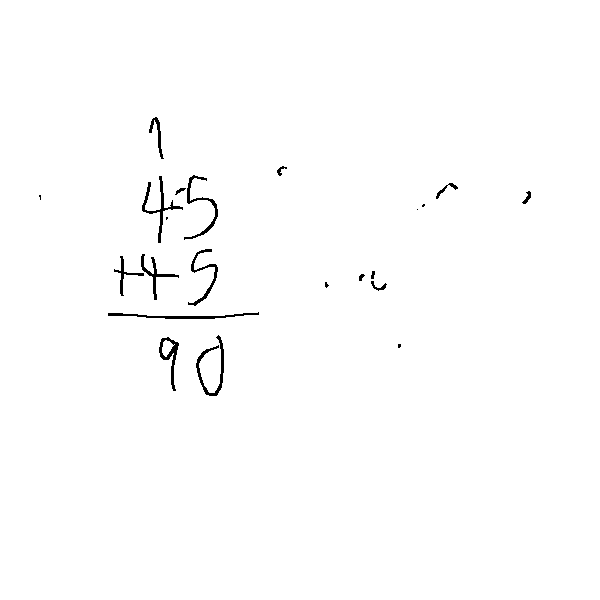 1
45
+45
90